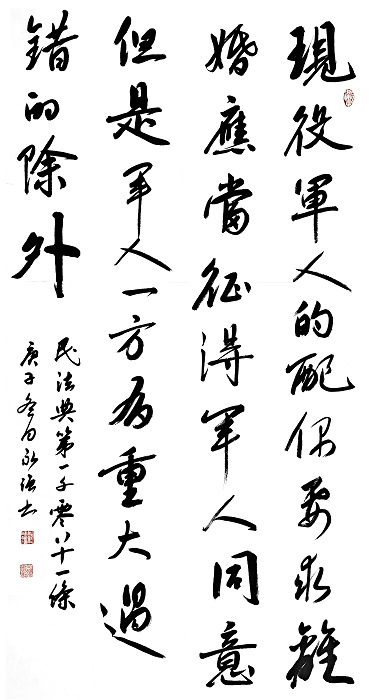 現役軍人的配偶要求離
婚應當征得軍人同意
但是軍人一方有重大過
錯的除外
民法典第一千零八十一條
庚子冬永強書